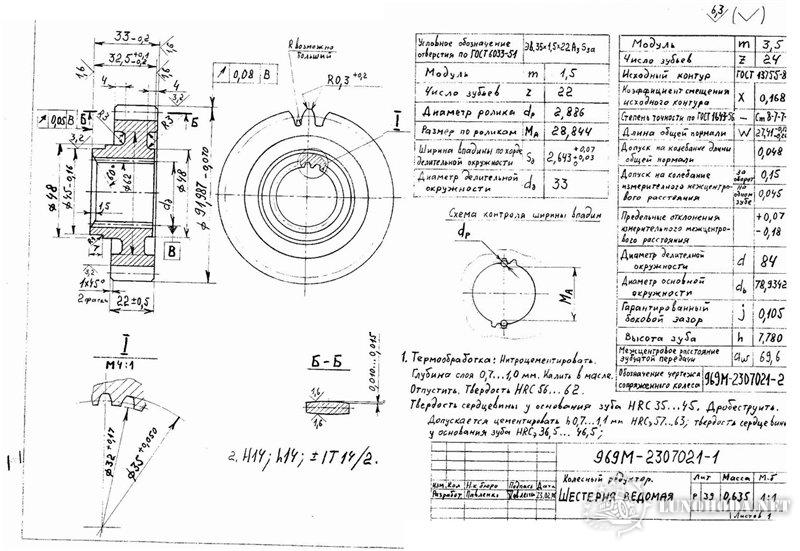 6,3 (√)
33-0,2
32,5 +0,1 -0,2
4
4
1,6
1,6
1,6
3,2
↗ 0,05 В
Б
Б
R3
R3
3,2
ф48
ф62
ф48
d∂
1,5
7
В
1,2
1×45°
2 фаски
22±0,5
↗ 0,08 В
R возможно
больший
R0,3 +0,2
I
Условное обозначение
отверстия по ГОСТ 6033-51
Модуль m 1,5
Число зубьев z 22
Диаметр ролика dр 2,886
Размер по роликам MА 28,844
Ширина впадины по хорде
делительной окружности S∂ 2,643 +0,07 +0,03
Диаметр делительной
окружности d∂ 33
Схема контроля ширины впадин
dр
MА
Модуль m 3,5
Число зубьев z 24
Исходный контур ГОСТ 13755-8
Коэффициент смещения
исходного контура X 0,168
Степень точности по ГОСТ 1643-56 — Ст 8-7-7-
Длина общей нормали W
Допуск на колебание длины
общей нормали 0,048
Допуск на колебание
измерительного межцентро-
вого расстояния
за оборот 0,15
на одном зубе 0,045
Предельные отклонения
измерительного межцентро-
вого расстояния +0,07 -0,18
Диаметр делительной
окружности d 84
Диаметр основной
окружности db 78,9342
Гарантированный
боковой зазор j 0,105
Высота зуба h 7,780
Межцентровое расстояние
зубчатой передачи aw 69,6
Обозначение чертежа
сопряженного колеса 969М-2307021-2
I
М4:1
ф32+0,17
ф35+0,050
Б-Б
1,6
1,6
0,010...0,015
1. Термообработка: Нитроцементировать.
Глубина слоя 0,7...1,0 мм. Калить в масле.
Отпустить. Твердость HRC 56...62.
Твердость сердцевины у основания зуба HRC 35...45. Дробеструить.
Допускается цементировать h0,7...1,1 мм HRCэ 57...63; твердость сердцевин
у основания зуба HRCэ 36,5... 46,5;
2. H14; h14; ± IT 14/2.
969М-2307021-1
Колесный редуктор.
ШЕСТЕРНЯ ВЕДОМАЯ
Изм. Кол № к. бюро Подпись Дата
Разработ Павленко
Лит Масса М-б
Р 39 0,635 1:1
Листов 1
LUNOHODA.NET